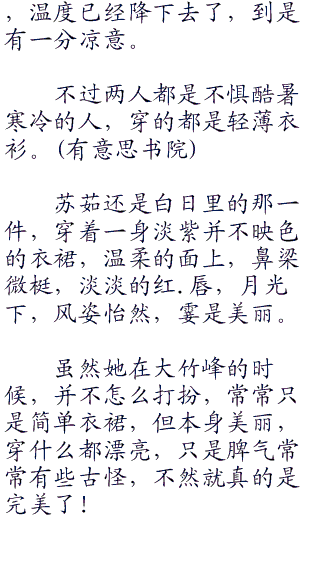 ，温度已经降下去了，到是
有一分凉意。
不过两人都是不惧酷暑
寒冷的人，穿的都是轻薄衣
衫。(有意思书院)
苏茹还是白日里的那一
件，穿着一身淡紫并不映色
的衣裙，温柔的面上，鼻梁
微梃，淡淡的红.唇，月光
下，风姿怡然，霎是美丽。
虽然她在大竹峰的时
候，并不怎么打扮，常常只
是简单衣裙，但本身美丽，
穿什么都漂亮，只是脾气常
常有些古怪，不然就真的是
完美了！